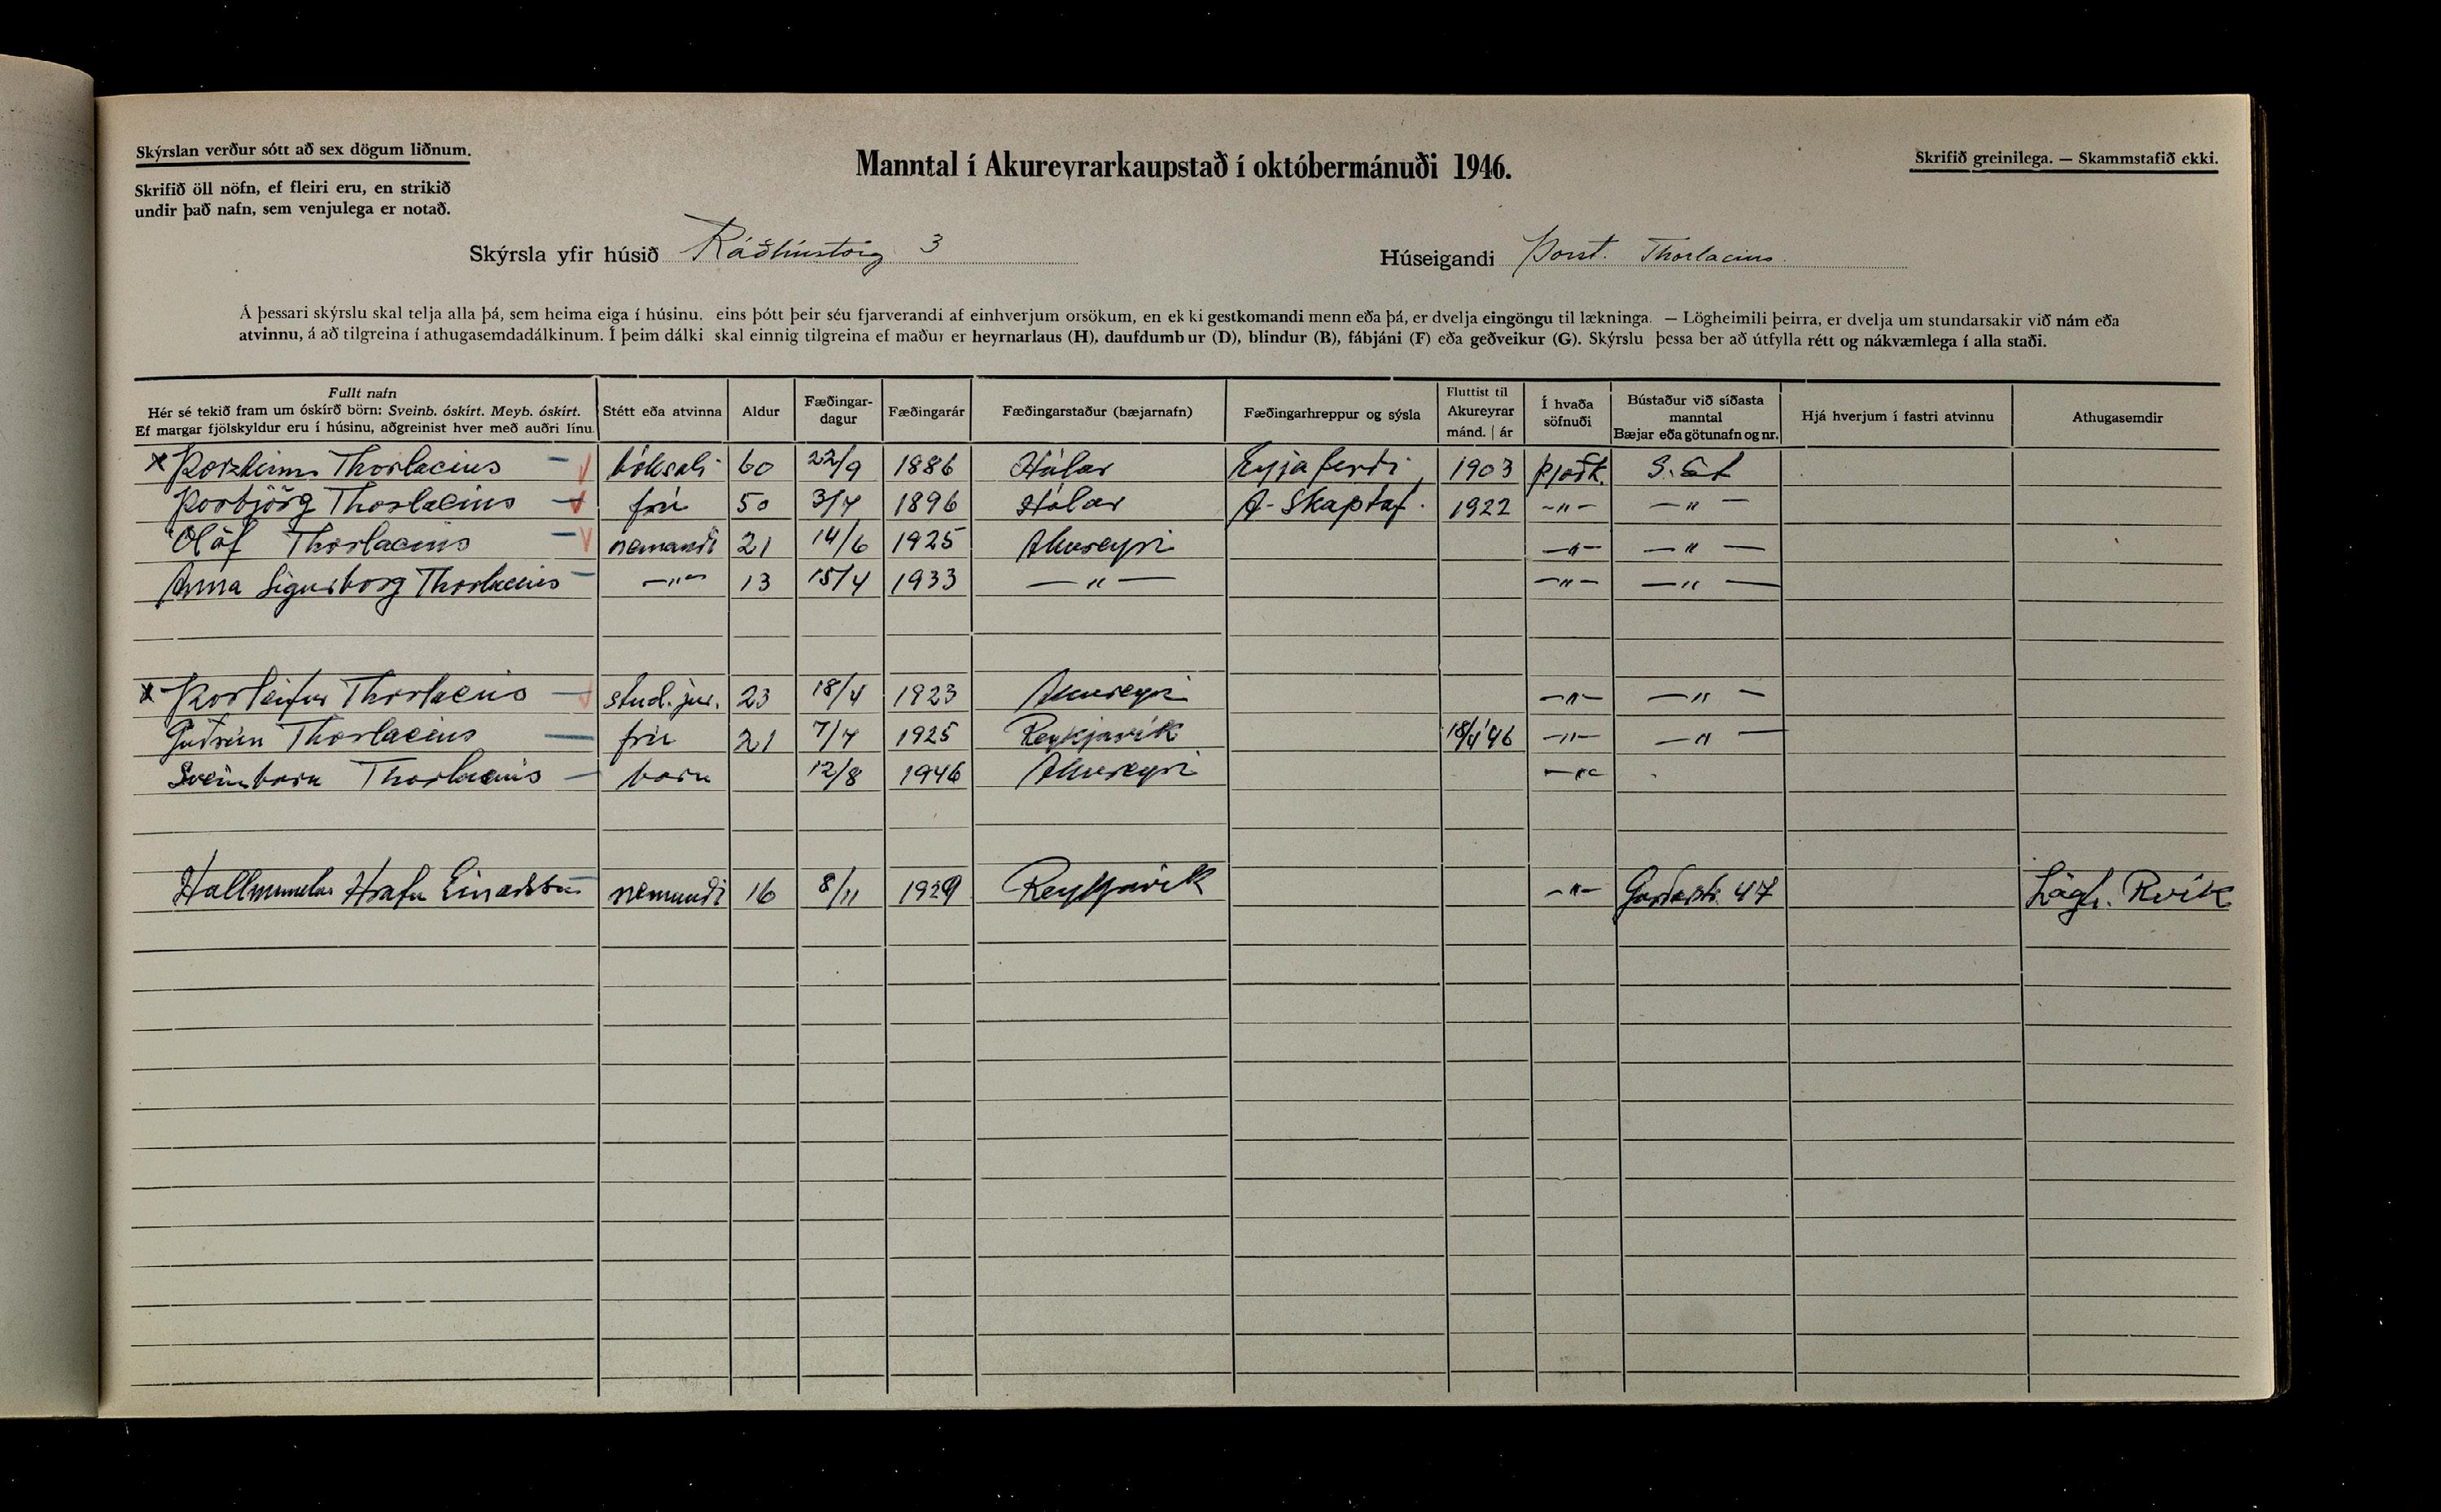 Skýrslan verður sótt að sex dögum liðnum.
Manntal í Akureyrarkaupstað í októbermánuði 1946.
Skrifið greinilega. — Skammstafið ekki.
Skrifið öll nöfn, ef fleiri eru, en strikið
undir það nafn, sem venjulega er notað.
Skýrsla yfir húsið Ráðhústorg 3 Húseigandi Þorst. Thorlacius.
Á þessari skýrslu skal telja alla þá, sem heima eiga í húsinu, eins þótt þeir séu fjarverandi af einhverjum orsökum, en ekki gestkomandi menn eða þá, er dvelja eingöngu til lækninga. — Lögheimili þeirra, er dvelja um stundarsakir við nám eða
atvinnu, á að tilgreina í athugasemdadálkinum. Í þeim dálki skal einnig tilgreina ef maður er heyrnarlaus (H), daufdumbur (D), blindur (B), fábjáni (F) eða geðveikur (G). Skýrslu þessa ber að útfylla rétt og nákvæmlega í alla staði.
Fullt nafn
Hér sé tekið fram um óskírð börn: Sveinb. óskírt. Meyb. óskírt.
Ef margar fjölskyldur eru í húsinu, aðgreinist hver með auðri línu.
Stétt eða atvinna
Aldur
Fæðingar-
dagur
Fæðingarár
Fæðingarstaður (bæjarnafn)
Fæðingarhreppur og sýsla
Fluttist til
Akureyrar
mánd. | ár
Í hvaða
söfnuði
Bústaður við síðasta
manntal
Bæjar eða götunafn og nr.
Hjá hverjum í fastri atvinnu
Athugasemdir
Thorlacius bóksali 60 22/9 1886 Hólar Eyjaferði 1903 Þjóðk. S. st
Þorbjörg Thorlacius frú 50 3/7 1896 Hólar A-Skaptaf. 1922 -"- -"-
Ólöf Thorlacius nemandi 21 14/6 1925 Akureyri -"- -"-
Anna Sigurborg Thorlacius -"- 13 15/4 1933 -"- -"- -"-
Þorleifur Thorlacius stud. jur. 23 18/4 1923 Akureyri -"- -"-
Guðrún Thorlacius frú 21 7/7 1925 Reykjavík 18/4 '46 -"- -"-
Sveinbarn Thorlacius barn 12/8 1946 Akureyri -"-
Hrafn Einarsson nemandi 16 8/11 1929 Reykjavík -"- Garðastr. 47 Lögh. Rvík